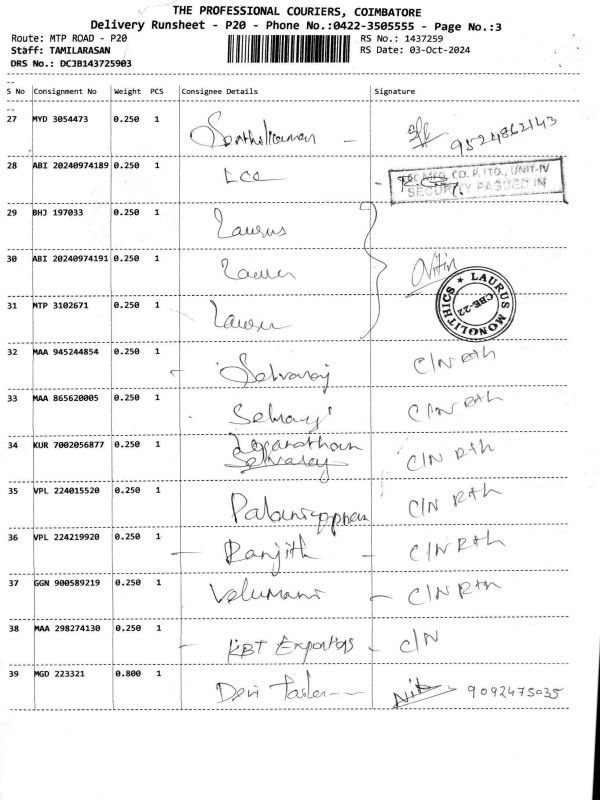 THE PROFESSIONAL COURIERS, COIMBATORE
Delivery Runsheet - P20 - Phone No.:0422-3505555 - Page No.:3
Route: MTP ROAD - P20 RS No.: 1437259
Staff: TAMILARASAN RS Date: 03-Oct-2024
DRS No.: DCJB143725903
S No Consignment No Weight PCS Consignee Details Signature
27 MYD 3054473 0.250 1 9524862143
28 ABI 20240974189 0.250 1 LCC CO. P. LTD., UNIT-IV
SECURITY PASSED IN
29 BHJ 197033 0.250 1 Laurus
30 ABI 20240974191 0.250 1 Nitin
LAURUS MONOLITHICS
CBE-22
31 MTP 3102671 0.250 1
32 MAA 945244854 0.250 1 Selvaraj C/N Rth
33 MAA 865620005 0.250 1 Selvaraj C/N Rth
34 KUR 7002056877 0.250 1 C/N Rth
35 VPL 224015520 0.250 1 Palaniappan C/N Rth
36 VPL 224219920 0.250 1 Ranjith C/N Rth
37 GGN 900589219 0.250 1 Velumani C/N Rth
38 MAA 298274130 0.250 1 KBT Exporters C/N
39 MGD 223321 0.800 1 Devi 9092475035